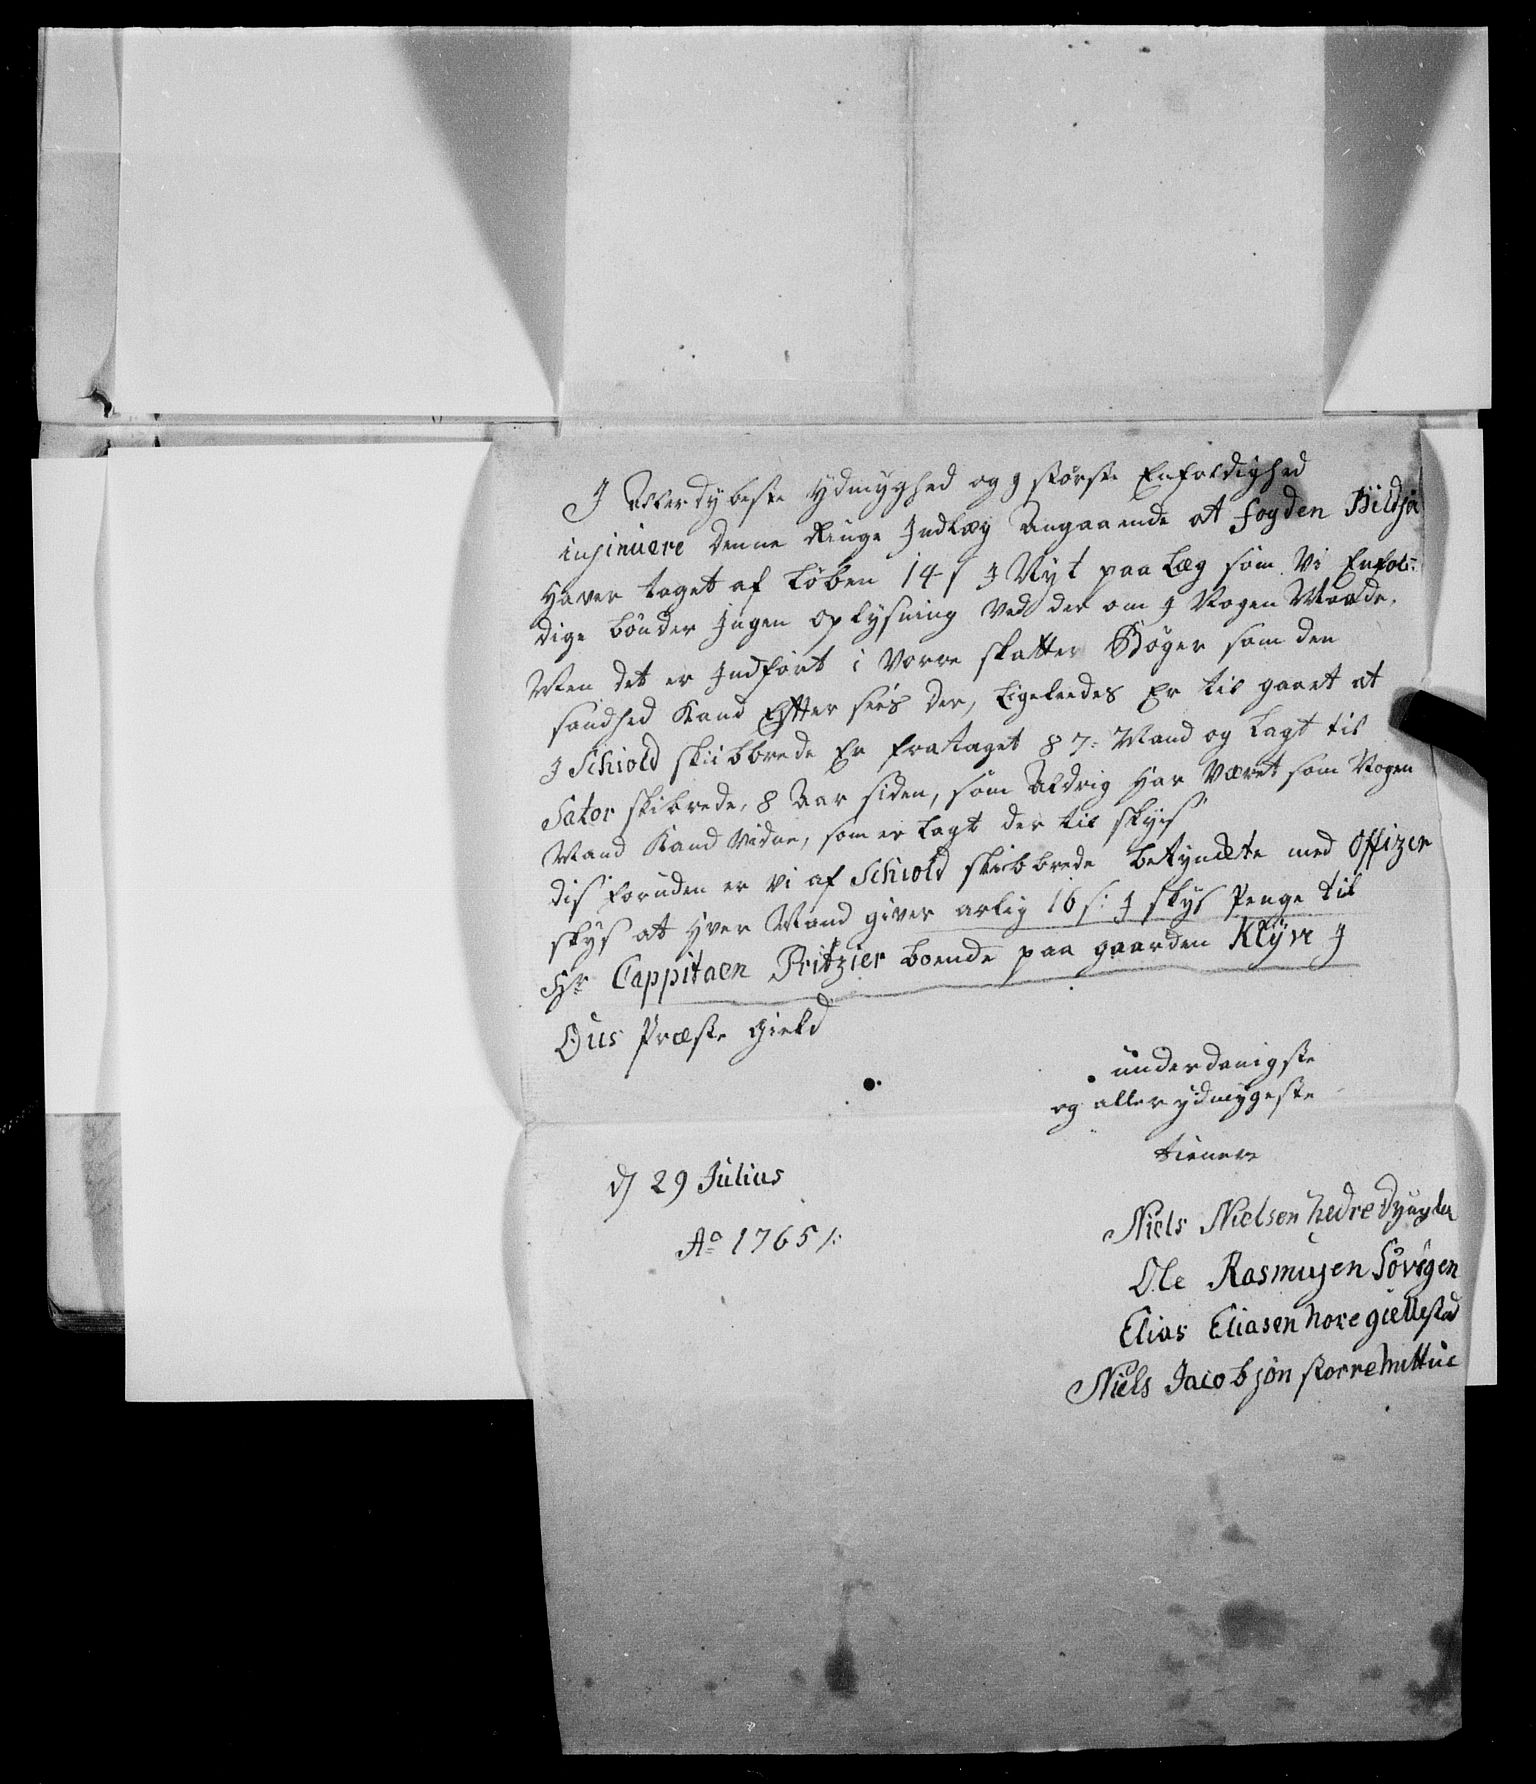 I Allerdybeste ydmyghed og i største Enfoldighed
insinuere denne Ringe Indlæg Angaaende at fogden Bildsø
Haver taget af Løben 14 s I Nyt paa Læg som Vi Enfol-
dige bønder Ingen oplysning Ved der om I Nogen Maade.
Men det er Indført i Vorre skatter Bøger som den
sandhed Kand Efter sees der, Ligeleedes Er til gaaet at
I Schiold skiibbrede Er frataget 87: Mand og Lagt til
Sator skibrede, 8 Aar siden, som Aldrig Har Været som Nogen
Mand Kand Vidne, som er Lagt der til skyds
dis foruden er vi af Schiold skibbrede betyndete med Offizer
skys at Hver Mand giver arlig 16 s: I skys Penge til
Hr Cappitaen Pritzier boende paa gaarden Klyve I
Ous Præste gield
underdanigste
og aller ydmygeste
tienere
d 29 Julius
Ao 1765/:
Niels Nielsen hedre
Ole Rasmusen Søvigen
Elias Eliasen hore giellestad
Niels Jacobsøn storre